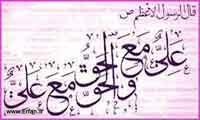 قال الرسول الاعظم ص
عَلِيٌّ مَعَ الْحَقِّ
وَالْحَقُّ مَعَ عَلِيٍّ
www.Erfan.ir